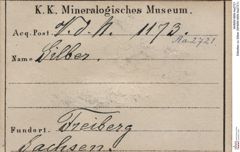 K. K. Mineralogisches Museum.
Acq. Post. V. d. N. 1173.
No 2721
Name Silber.
Fundort. Freiberg
Sachsen.